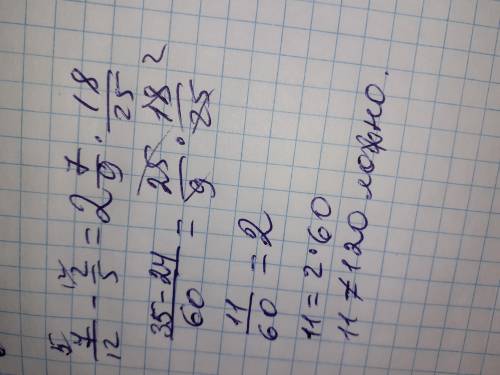 7/12 ⁵ - 2/5 ¹² = 2 7/9 · 18/25
35-24/60 = 25/9 · 18/25 ²
11/60 = 2
11 = 2·60
11 ≠ 120 ложно.